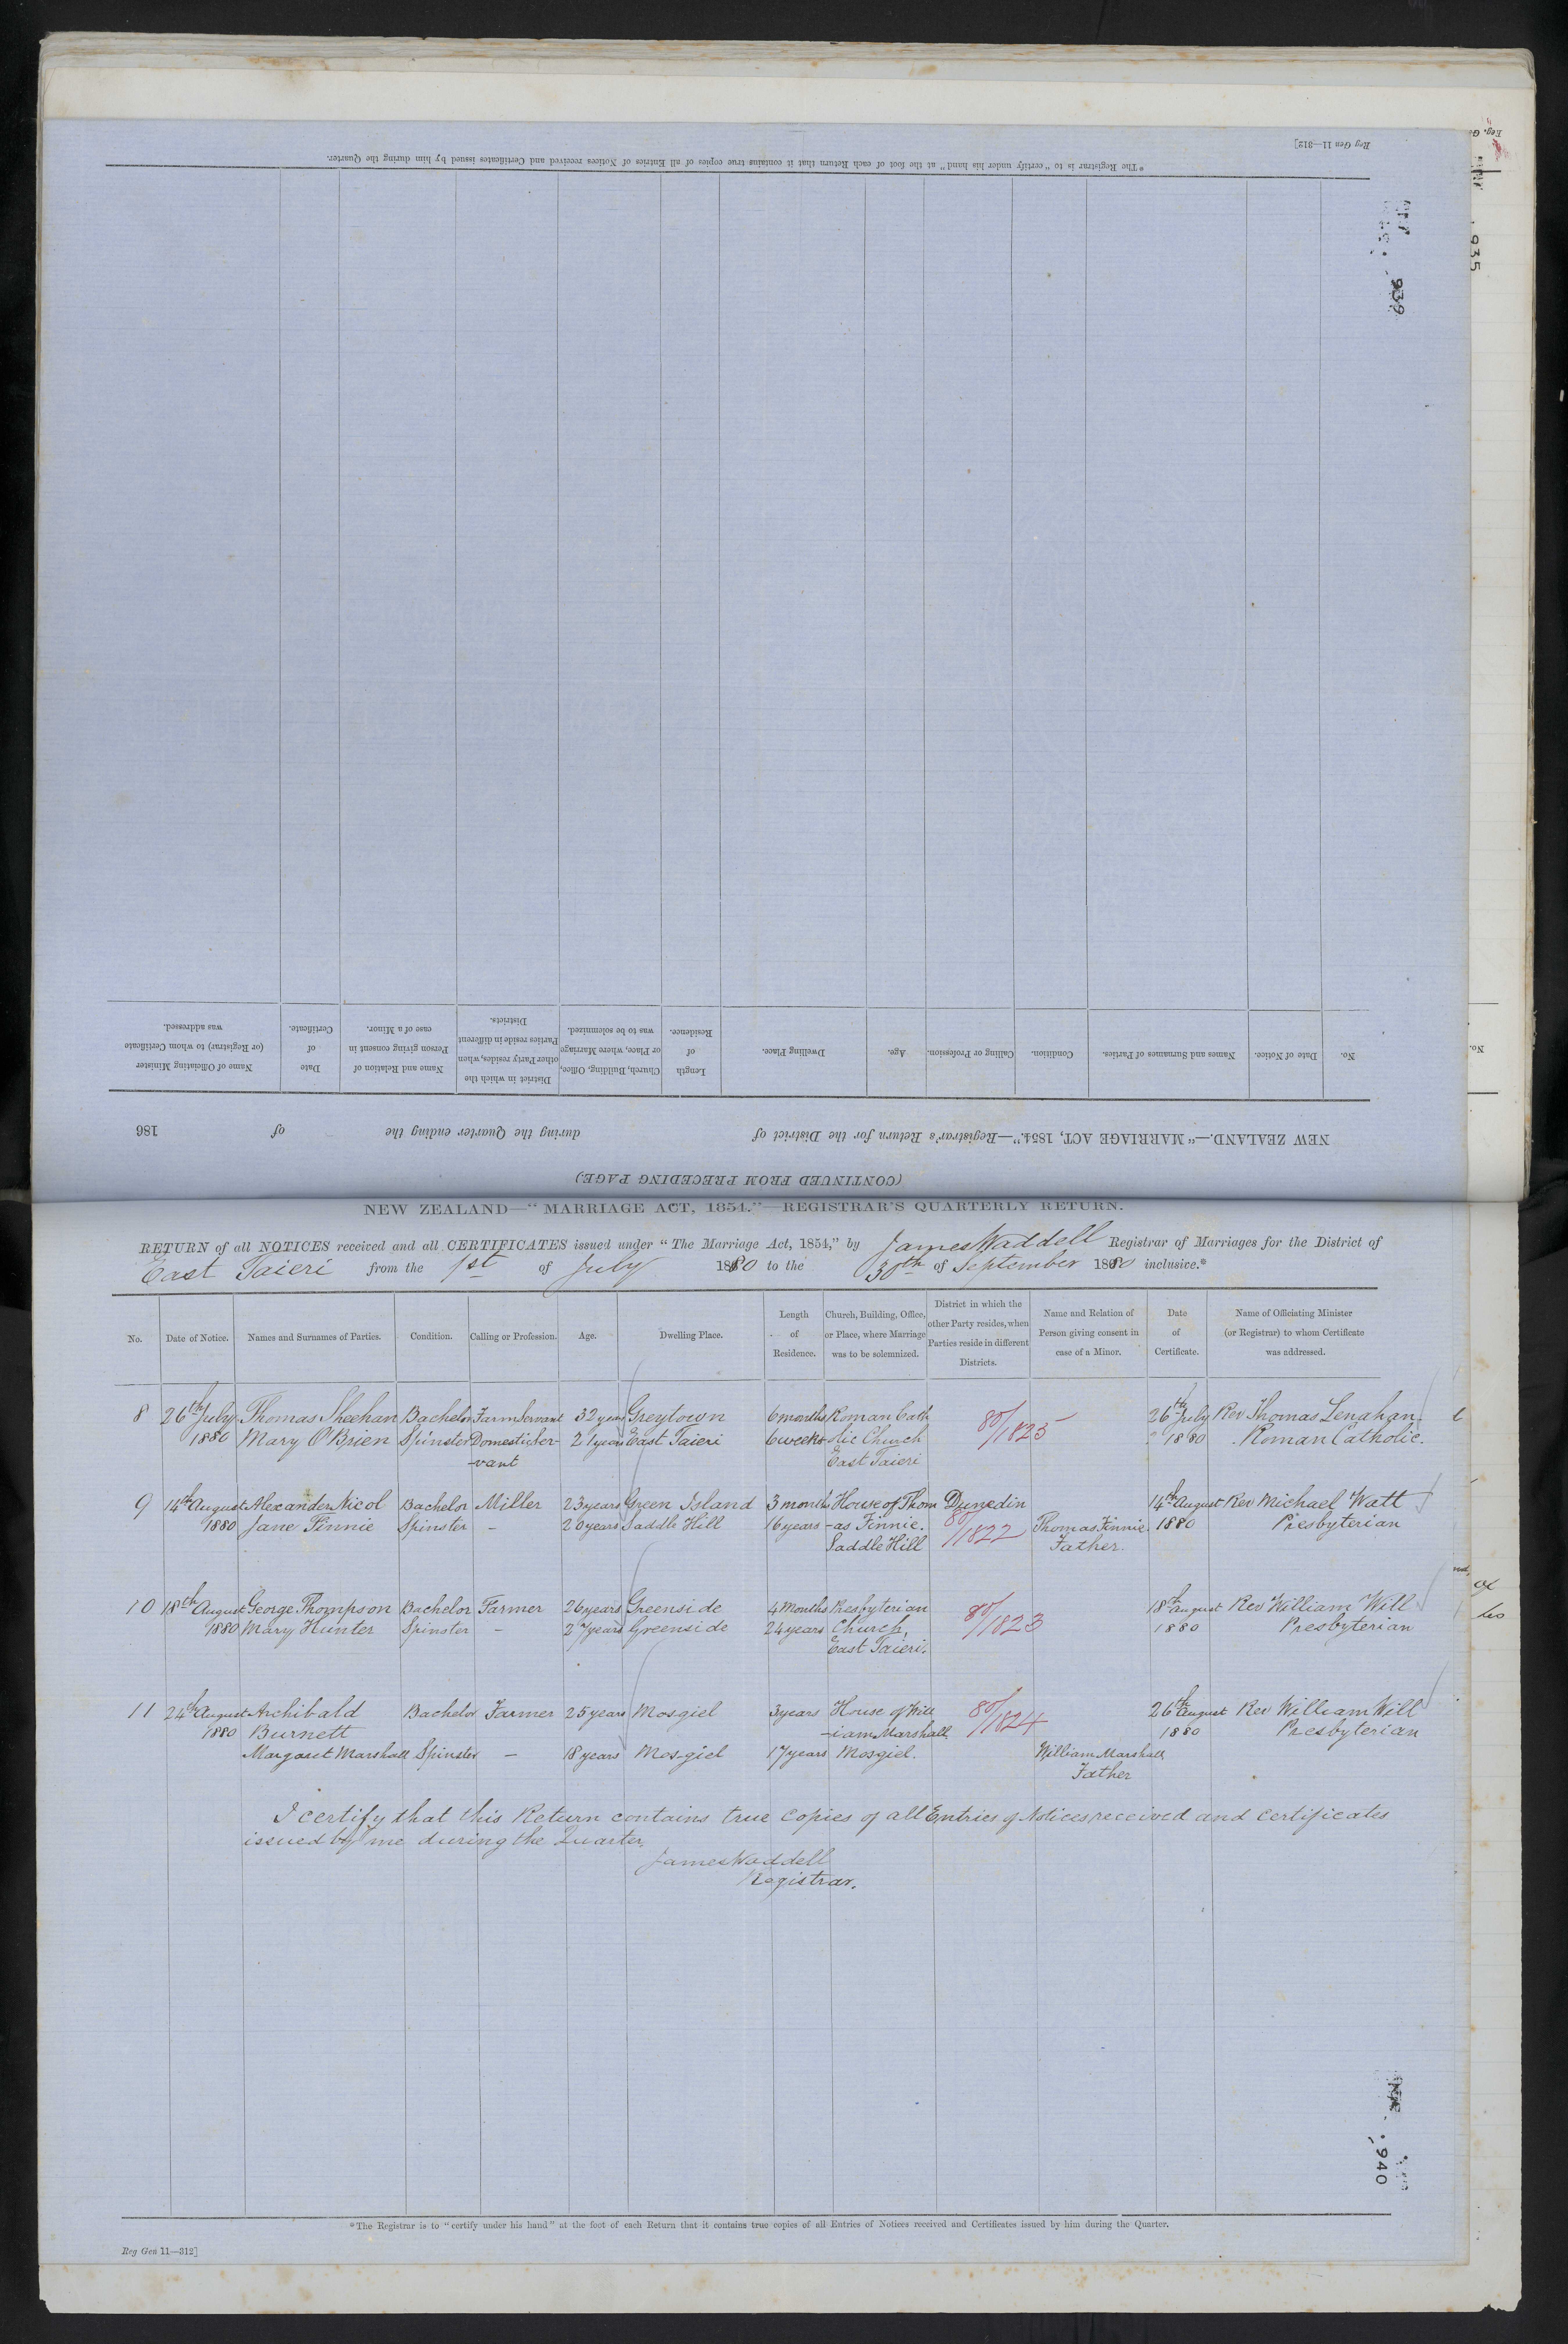 Reg Gen 11—312]
*The Registrar is to "certify under his hand" at the foot of each Return that it contains true copies of all Entries of Notices received and Certificates issued by him during the Quarter.
939
935
No.
Date of Notice.
Names and Surnames of Parties.
Condition.
Calling or Profession.
Age.
Dwelling Place.
Length
of
Residence.
Church, Building, Office,
or Place, where Marriage
was to be solemnized.
District in which the
other Party resides, when
Parties reside in different
Districts.
Name and Relation of
Person giving consent in
case of a Minor.
Date
of
Certificate.
Name of Officiating Minister
(or Registrar) to whom Certificate
was addressed.
No.
NEW ZEALAND.—"MARRIAGE ACT, 1854."—Registrar's Return for the District of during the Quarter ending the of 186
(CONTINUED FROM PRECEDING PAGE.)
NEW ZEALAND—"MARRIAGE ACT, 1854."—REGISTRAR'S QUARTERLY RETURN.
RETURN of all NOTICES received and all CERTIFICATES issued under "The Marriage Act, 1854," by James Waddell Registrar of Marriages for the District of
East Taieri from the 1st of July 1880 to the 30th of September 1880 inclusive.*
No.
Date of Notice.
Names and Surnames of Parties.
Condition.
Calling or Profession.
Age.
Dwelling Place.
Length
of
Residence.
Church, Building, Office,
or Place, where Marriage
was to be solemnized.
District in which the
other Party resides, when
Parties reside in different
Districts.
Name and Relation of
Person giving consent in
case of a Minor.
Date
of
Certificate.
Name of Officiating Minister
(or Registrar) to whom Certificate
was addressed.
8 26th July Thomas Sheehan Bachelor Farm Servant 32 years Greytown 6 months Roman Cath 80/1825 26th July Rev Thomas Lenahan
1880 Mary O'Brien Spinster Domestic Ser- 21 years East Taieri 6 weeks -lic Church 1880 Roman Catholic.
-vant East Taieri
9 14th August Alexander Nicol Bachelor Miller 23 years Green Island 3 months House of Thom Dunedin 14th August Rev Michael Watt
1880 Jane Finnie Spinster - 20 years Saddle Hill 16 years -as Finnie. 80/1822 Thomas Finnie 1880 Presbyterian
Saddle Hill Father.
10 18th August George Thompson Bachelor Farmer 26 years Greenside 4 Months Presbyterian 80/1823 18th August Rev William Will
1880 Mary Hunter Spinster - 24 years Greenside 24 years Church, 1880 Presbyterian
East Taieri.
11 24th August Archibald Bachelor Farmer 25 years Mosgiel 3 years House of Will 80/1824 26th August Rev William Will
1880 Burnett -iam Marshall 1880 Presbyterian
Margaret Marshall Spinster - 18 years Mosgiel 17 years Mosgiel. William Marshall
Father
I certify that this Return contains true copies of all Entries of Notices received and certificates
issued by me during the Quarter.
James Waddell
Registrar.
940
*The Registrar is to "certify under his hand" at the foot of each Return that it contains true copies of all Entries of Notices received and Certificates issued by him during the Quarter.
Reg Gen 11—312]